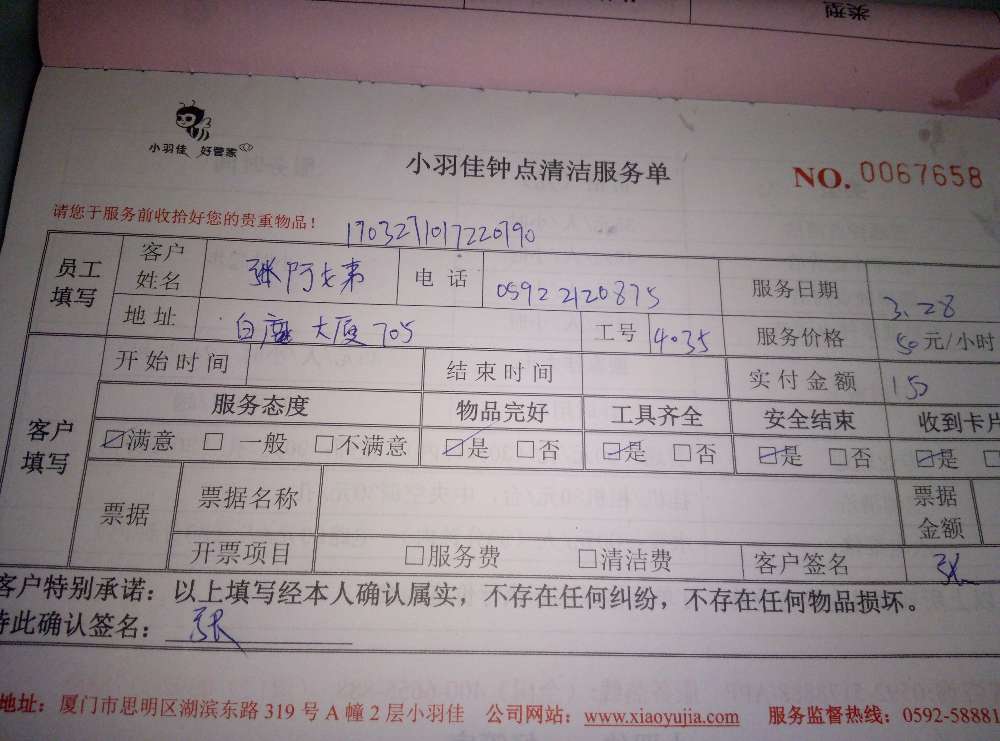 类型
小羽佳 好管家
小羽佳钟点清洁服务单
NO. 0067658
请您于服务前收拾好您的贵重物品！
1703271017220790
员工填写 客户姓名 张阿七弟 电话 05922120875 服务日期 3.28
地址 白鹿大厦705 工号 4035 服务价格 50元/小时
客户填写 开始时间 结束时间 实付金额 150
服务态度 物品完好 工具齐全 安全结束 收到卡片
☑满意 □一般 □不满意 ☑是 □否 ☑是 □否 ☑是 □否 ☑是 □
票据 票据名称 票据金额
开票项目 □服务费 □清洁费 客户签名 张
客户特别承诺：以上填写经本人确认属实，不存在任何纠纷，不存在任何物品损坏。
特此确认签名：张
地址：厦门市思明区湖滨东路319号A幢2层小羽佳 公司网站：www.xiaoyujia.com 服务监督热线：0592-58881